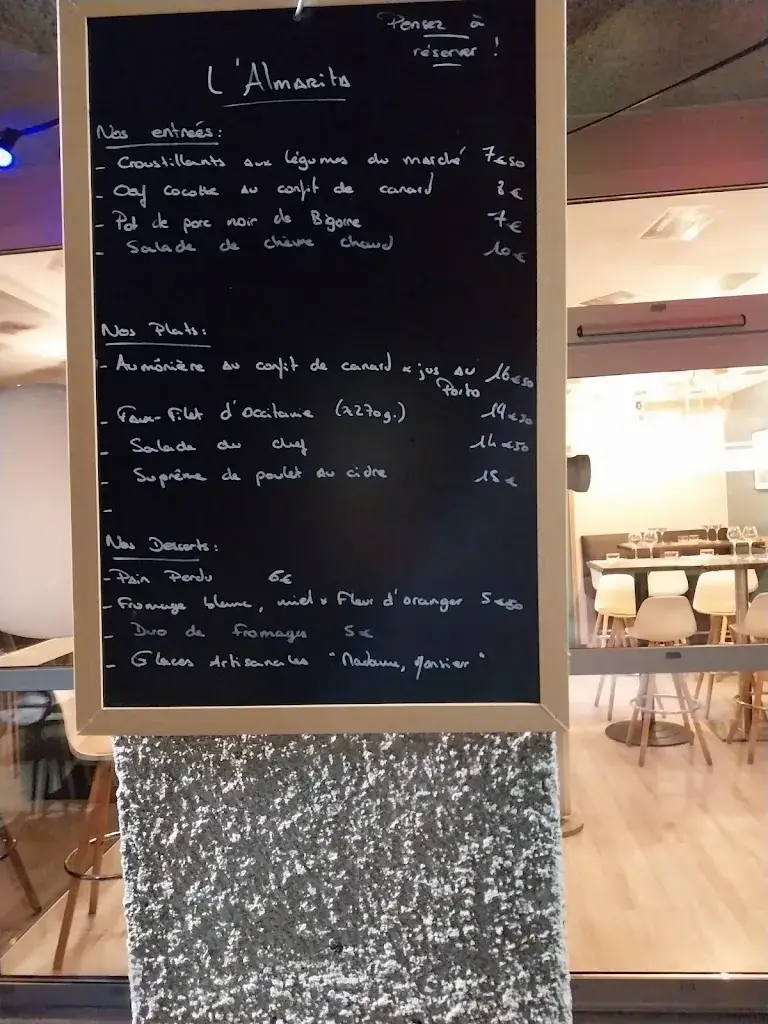 Pensez à
réserver !
L'Almarita
Nos entrées :
- Croustillants aux légumes du marché 7€50
- Oeuf cocotte au confit de canard 8€
- Pot de porc noir de Bigorre 7€
- Salade de chèvre chaud 10€
Nos Plats :
- Aumônière au confit de canard & jus au 16€50
Porto
- Faux-Filet d'Occitanie (≈270g.)
- Salade du chef 14€50
- Suprême de poulet au cidre 15€
-
Nos Desserts :
- Pain Perdu 6€
- Fromage blanc, miel & Fleur d'oranger 5€50
- Duo de fromages 5€
- Glaces Artisanales "Madame, Monsieur"